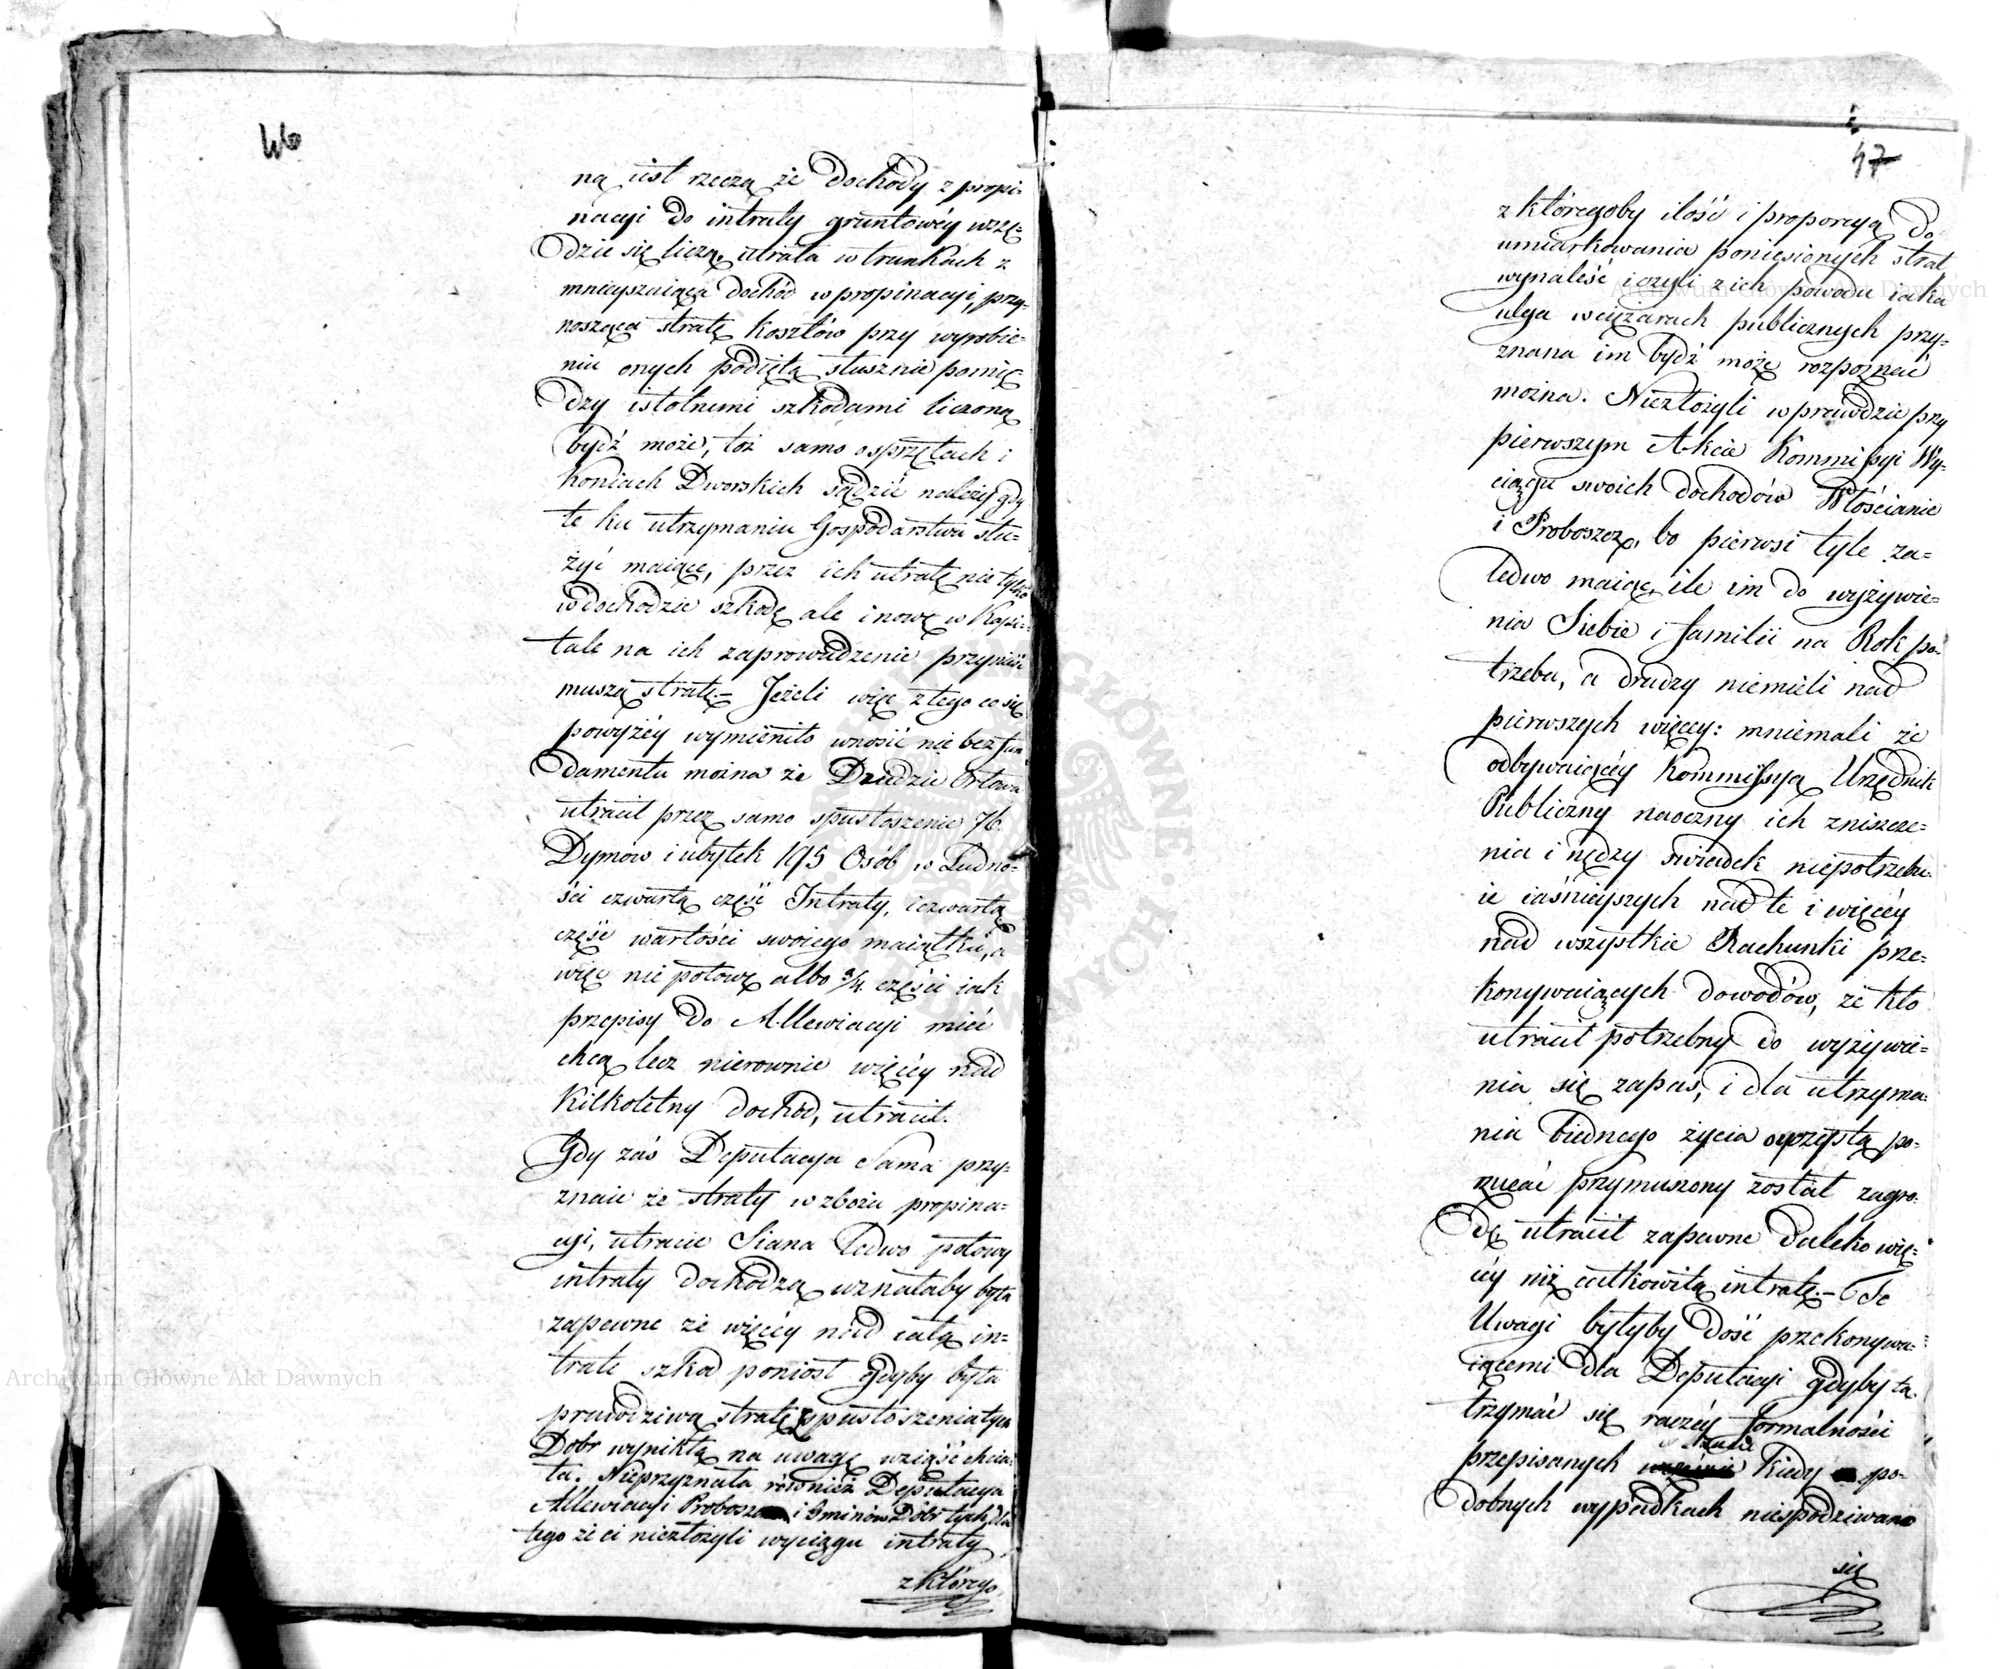 46
ną iest rzeczą że dochody z propi=
nacyi do intraty gruntowéy wszę=
dzie się liczą, utrata w trunkach z
mnieyszaiąca dochód w propinacyi, przy=
nosząca stratę kosztów przy wyrobie=
niu onych podiętą słusznie pomię=
dzy istotnemi szkodami liczoną
bydź może, toż samo o sprzętach i
koniach Dworskich sądzić należy gdy
te ku utrzymaniu Gospodarstwa słu=
żyć maiące, przez ich utratę nie tylko
w dochodzie szkodę ale i nową w Kapi=
tale na ich zaprowadzenie przynieść
muszą stratę.= Jeżeli więc z tego co się
powyżéy wymieniło wnosić nie bez fun
damentu można że Dziedzic Orłowa
utracił przez samo spustoszenie 76.
Dymów i ubytek 195 Osób w Ludno=
ści czwartą część Intraty, i czwartą
część wartości swoiego maiątku, a
więc nie połowę albo 3/4 części iak
przepisy do Allewiacyi mieć
chcą lecz nierownie więcéy nad
kilkoletny dochód, utracił.
Gdy zaś Deputacya Sama przy=
znaie że straty w zbożu propina=
cyi, utracie Siana ledwo połowy
intraty dochodzą uznałaby była
zapewne że więcéy nad całą in=
tratę szkod poniosł gdyby była
prawdziwą stratę z spustoszenia tych
Dobr wynikłą na uwagę wziąść chcia=
ła. Nieprzyznała również Deputacya
Allewiacyi Probosz i Gminów Dóbr tych, dla
tego że ci niezłożyli wyciągu intraty
z którego
47
z któregoby ilość i proporcyą do
umiarkowania poniesionych strat
wynaleść i czyli z ich powodu iaka
ulga w ciężarach publicznych przy=
znana im bydź może rozpoznać
można. Niezłożyli w prawdzie przy
pierwszym Akcie Kommissyi Wy=
ciągu swoich dochodów Włościanie
i Proboszcz, bo pierwsi tyle za=
ledwo maiąc, ile im do wyżywie=
nia Siebie i familii na Rok po=
trzeba, a drudzy niemieli nad
pierwszych więcéy: mniemali że
odbywaiącéy Kommissyą Urzędnik
Publiczny naoczny ich zniszcze=
nia i nędzy świadek niepotrzebu=
ie iaśnieyszych nad te i więcéy
nad wszystkie Rachunki prze=
konywaiących dowodów, że kto
utracił potrzebny do wyżywie=
nia się zapas, i dla utrzyma=
nia biednego życia oyczystą po=
rzucać przymuszony został zagro=
dę, utracił zapewne daleko wię=
céy niż całkowitą intratę.= Te
Uwagi byłyby dość przekonywa=
iącemi dla Deputacyi gdyby ta
trzymać się raczéy formalności
przepisanych Kiedy po=
dobnych wypadkach niespodziwano
się
Archiwum Główne Akt Dawnych
Archiwum Główne Akt Dawnych